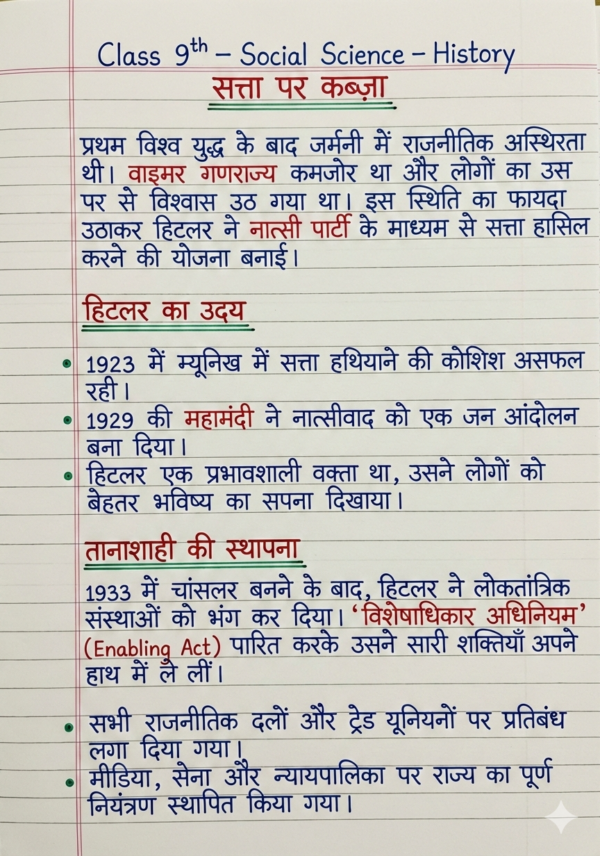 Class 9th – Social Science – History
सत्ता पर कब्ज़ा
प्रथम विश्व युद्ध के बाद जर्मनी में राजनीतिक अस्थिरता
थी। वाइमर गणराज्य कमजोर था और लोगों का उस
पर से विश्वास उठ गया था। इस स्थिति का फायदा
उठाकर हिटलर ने नात्सी पार्टी के माध्यम से सत्ता हासिल
करने की योजना बनाई।
हिटलर का उदय
• 1923 में म्यूनिख में सत्ता हथियाने की कोशिश असफल
रही।
• 1929 की महामंदी ने नात्सीवाद को एक जन आंदोलन
बना दिया।
• हिटलर एक प्रभावशाली वक्ता था, उसने लोगों को
बेहतर भविष्य का सपना दिखाया।
तानाशाही की स्थापना
1933 में चांसलर बनने के बाद, हिटलर ने लोकतांत्रिक
संस्थाओं को भंग कर दिया। ‘विशेषाधिकार अधिनियम’
(Enabling Act) पारित करके उसने सारी शक्तियाँ अपने
हाथ में ले लीं।
• सभी राजनीतिक दलों और ट्रेड यूनियनों पर प्रतिबंध
लगा दिया गया।
• मीडिया, सेना और न्यायपालिका पर राज्य का पूर्ण
नियंत्रण स्थापित किया गया।